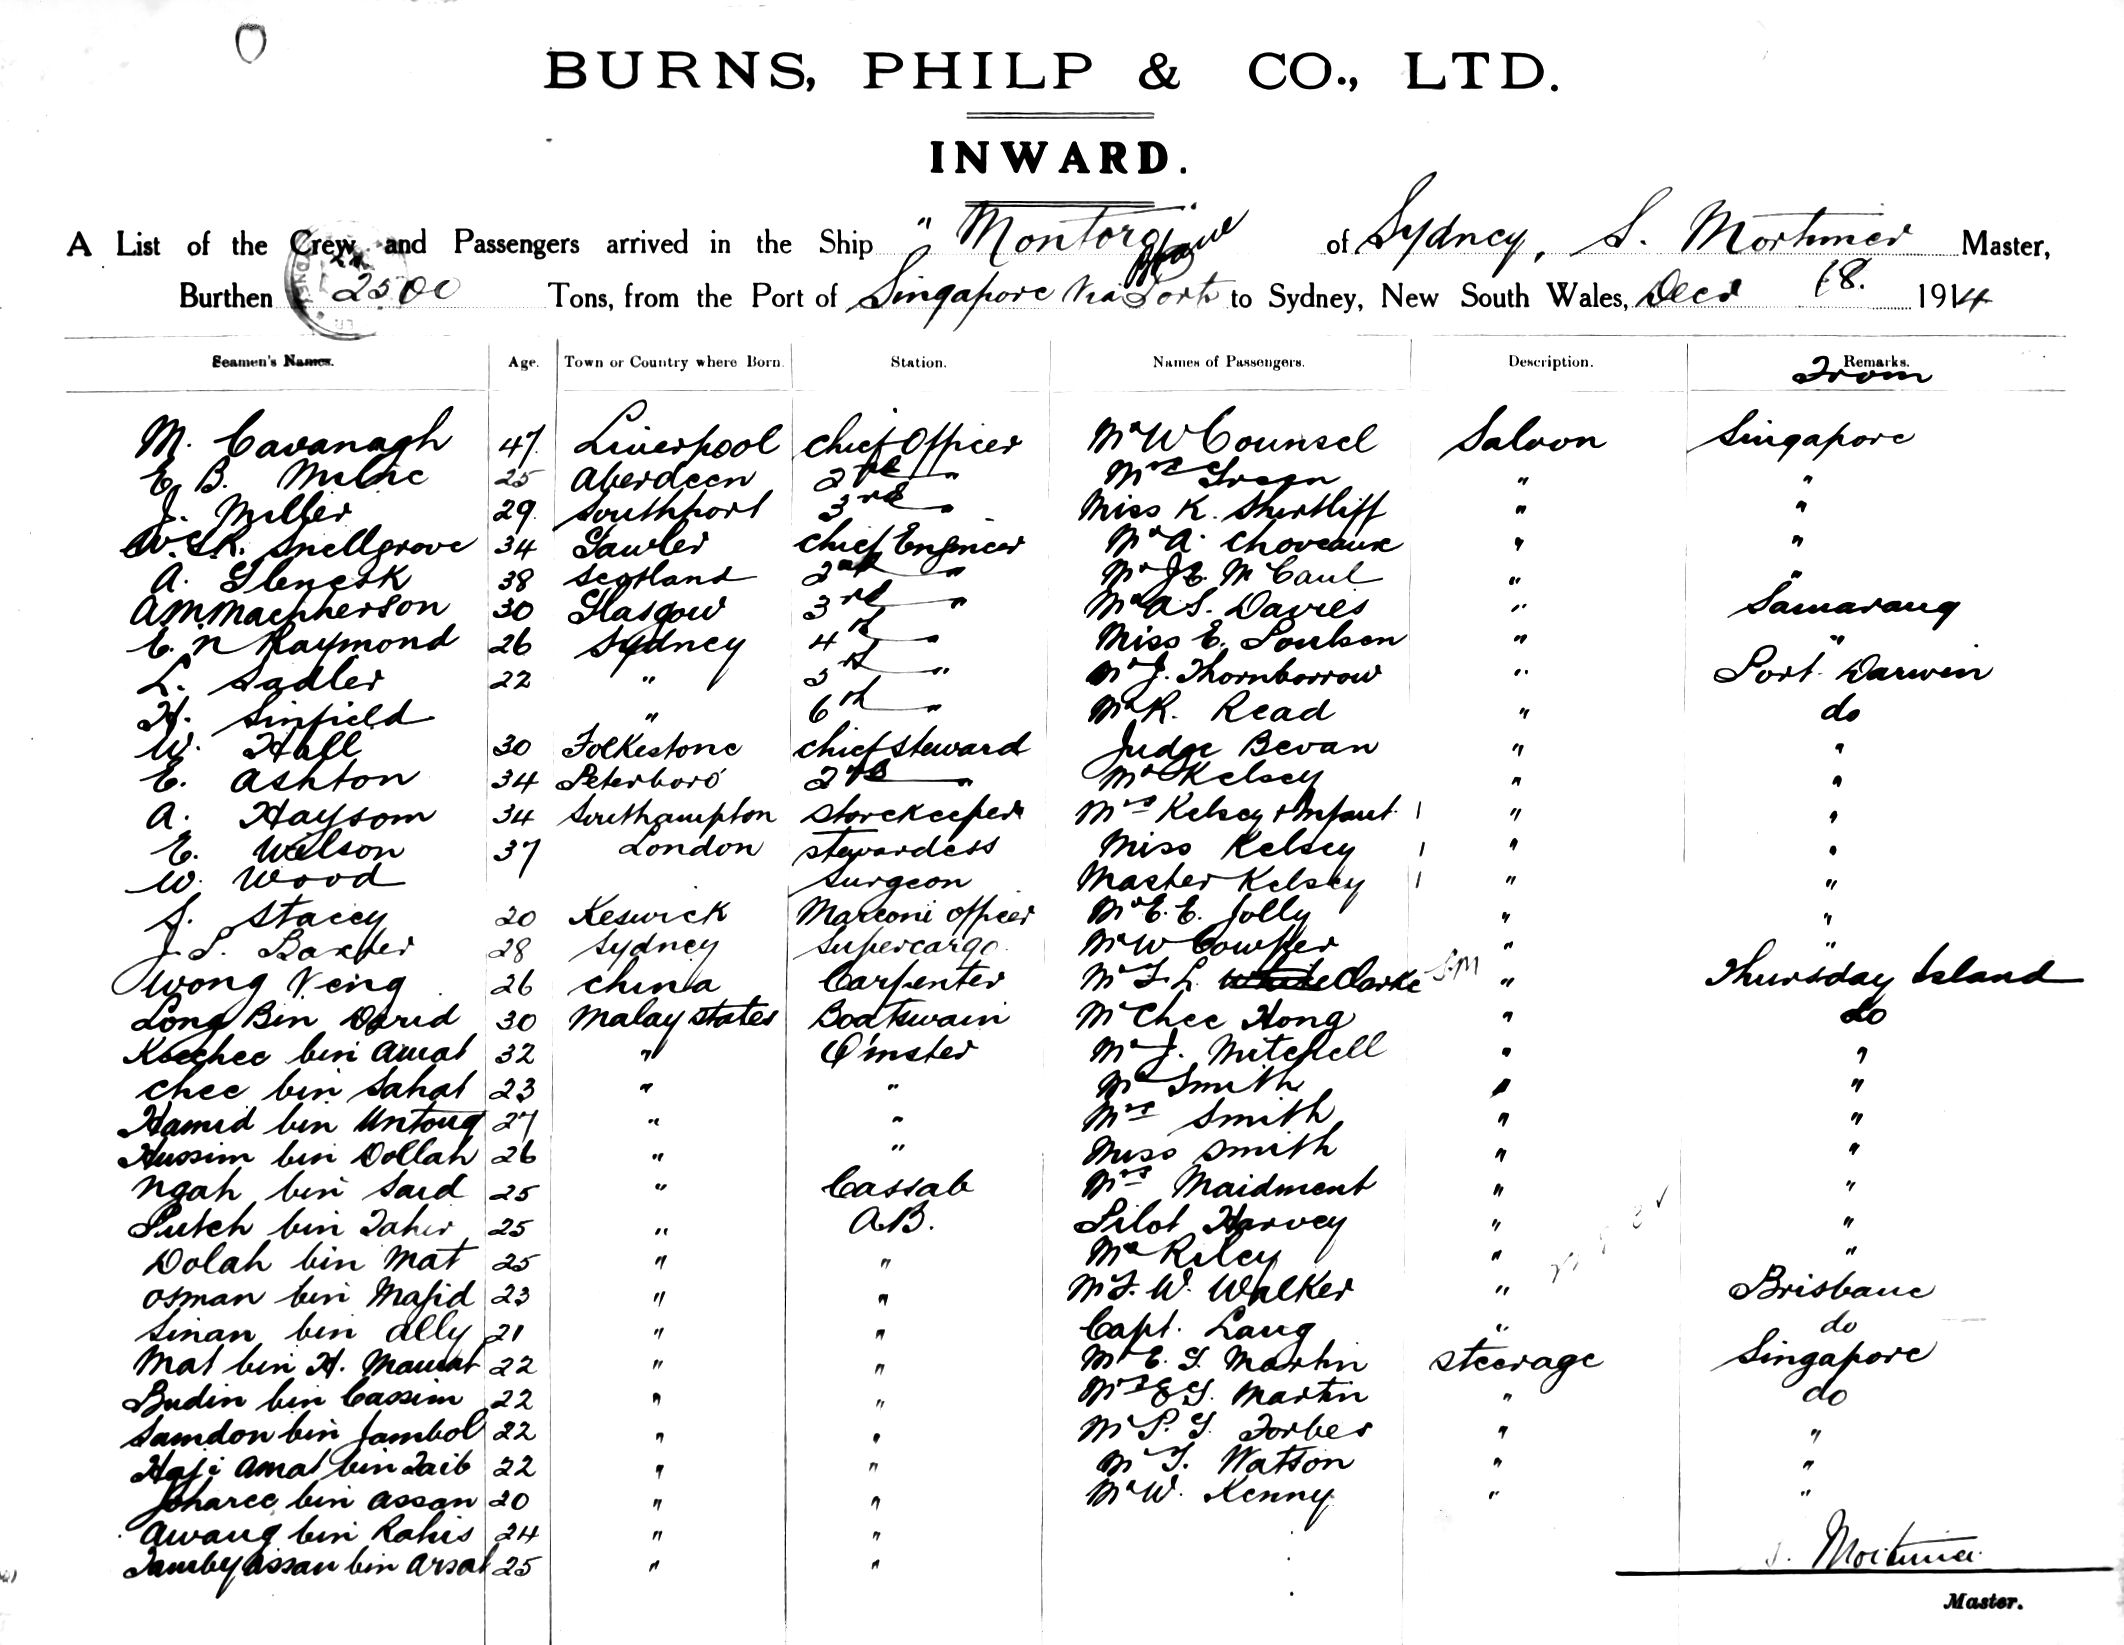 BURNS, PHILP & CO., LTD.
INWARD.
A List of the Crew and Passengers arrived in the Ship "Montoro" of Sydney, S. Mortimer Master,
Burthen 2500 Tons, from the Port of Singapore via Ports to Sydney, New South Wales, Decr 18. 1914
Seamen's Names. Age. Town or Country where Born. Station. Names of Passengers. Description. Remarks.
From
M. Cavanagh 47. Liverpool Chief Officer Mr W Counsel Saloon Singapore
E. B. Milne 25 Aberdeen 2nd " Mrs Green " "
J. Miller 29. Southport 3rd " Miss K. Shirtliff " "
W.G.R. Snellgrove 34 Gawler Chief Engineer Mr A. Choveaux " "
A. Glenesk 38 Scotland 2nd " Mr J.E. McCaul " "
A M Macpherson 30 Glasgow 3rd " Mr A S. Davies " Samarang
E. N Raymond 26 Sydney 4th " Miss E. Poulsen " "
L. Sadler 22 " 5th " Mr J. Thornborrow " Port Darwin
H. Sinfield " 6th " Mr R. Read " do
W. Hall 30 Folkestone Chief Steward Judge Bevan " "
E. Ashton 34 Peterboro' 2nd " Mr Kelsey " "
A. Haysom 34 Southampton Storekeeper Mrs Kelsey & Infant 1 " "
E. Wilson 37 London Stewardess Miss Kelsey 1 " "
W. Wood Surgeon Master Kelsey 1 " "
S. Stacey 20 Keswick Marconi Officer Mr E. E. Jolly " "
J. P. Baxter 28 Sydney Supercargo. Mr W Cowper " "
Wong Veng 26 China Carpenter Mr F. L. Clarke " Thursday Island
Long Bin David 30 Malay States Boatswain Mr Chee Hong " do
Keechee bin Amat 32 " Q'mster Mr J. Mitchell " "
Chee bin Sahat 23 " " Mr Smith " "
Hamid bin Untong 27 " " Mrs Smith " "
Hussim bin Dollah 26 " " Miss Smith " "
Ngah bin Said 25 " Cassab Mrs Maidment " "
Puteh bin Tahir 25 " A.B. Pilot Harvey " "
Dolah bin Mat 25 " " Mr Riley " "
Osman bin Majid 23 " " Mr F. W. Walker " Brisbane
Sinan bin Ally 21 " " Capt. Lang " do
Mat bin H. Mamat 22 " " Mr E. G. Martin Steerage Singapore
Budin bin Cassim 22 " " Mrs E G. Martin " do
Samdon bin Jambol 22 " " Mr P. G. Forbes " "
Haji Amat bin Taib 22 " " Mr T. Watson " "
Joharee bin Assan 20 " " Mr W. Kenny " "
Awang bin Rahis 24 " "
Tamby Assan bin Arsat 25 " "
S. Mortimer
Master.